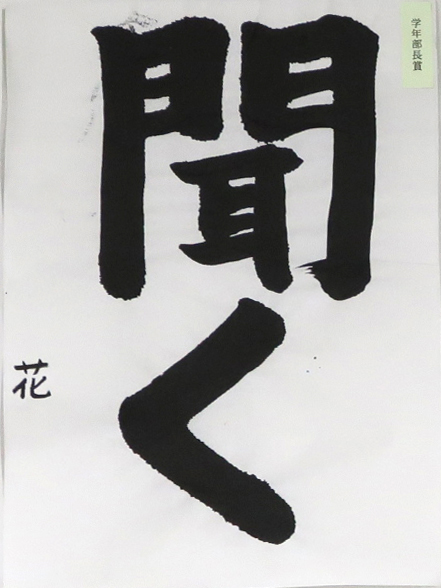 学年部長賞
聞く
花